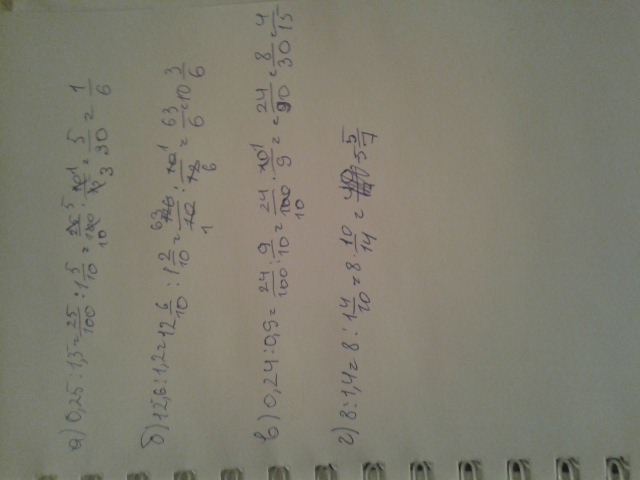 а) 0,25 : 1,5 = 25/100 : 1 5/10 = 25 5/100 10 : 10 1/15 3 = 5/30 = 1/6
б) 12,6 : 1,2 = 12 6/10 : 1 2/10 = 63 126/10 1 : 10 1/12 6 = 63/6 = 10 3/6
в) 0,24 : 0,9 = 24/100 : 9/10 = 24/100 10 : 10 1/9 = 24/90 = 8/30 = 4/15
г) 8 : 1,4 = 8 : 1 4/10 = 8 · 10/14 = 5 5/7